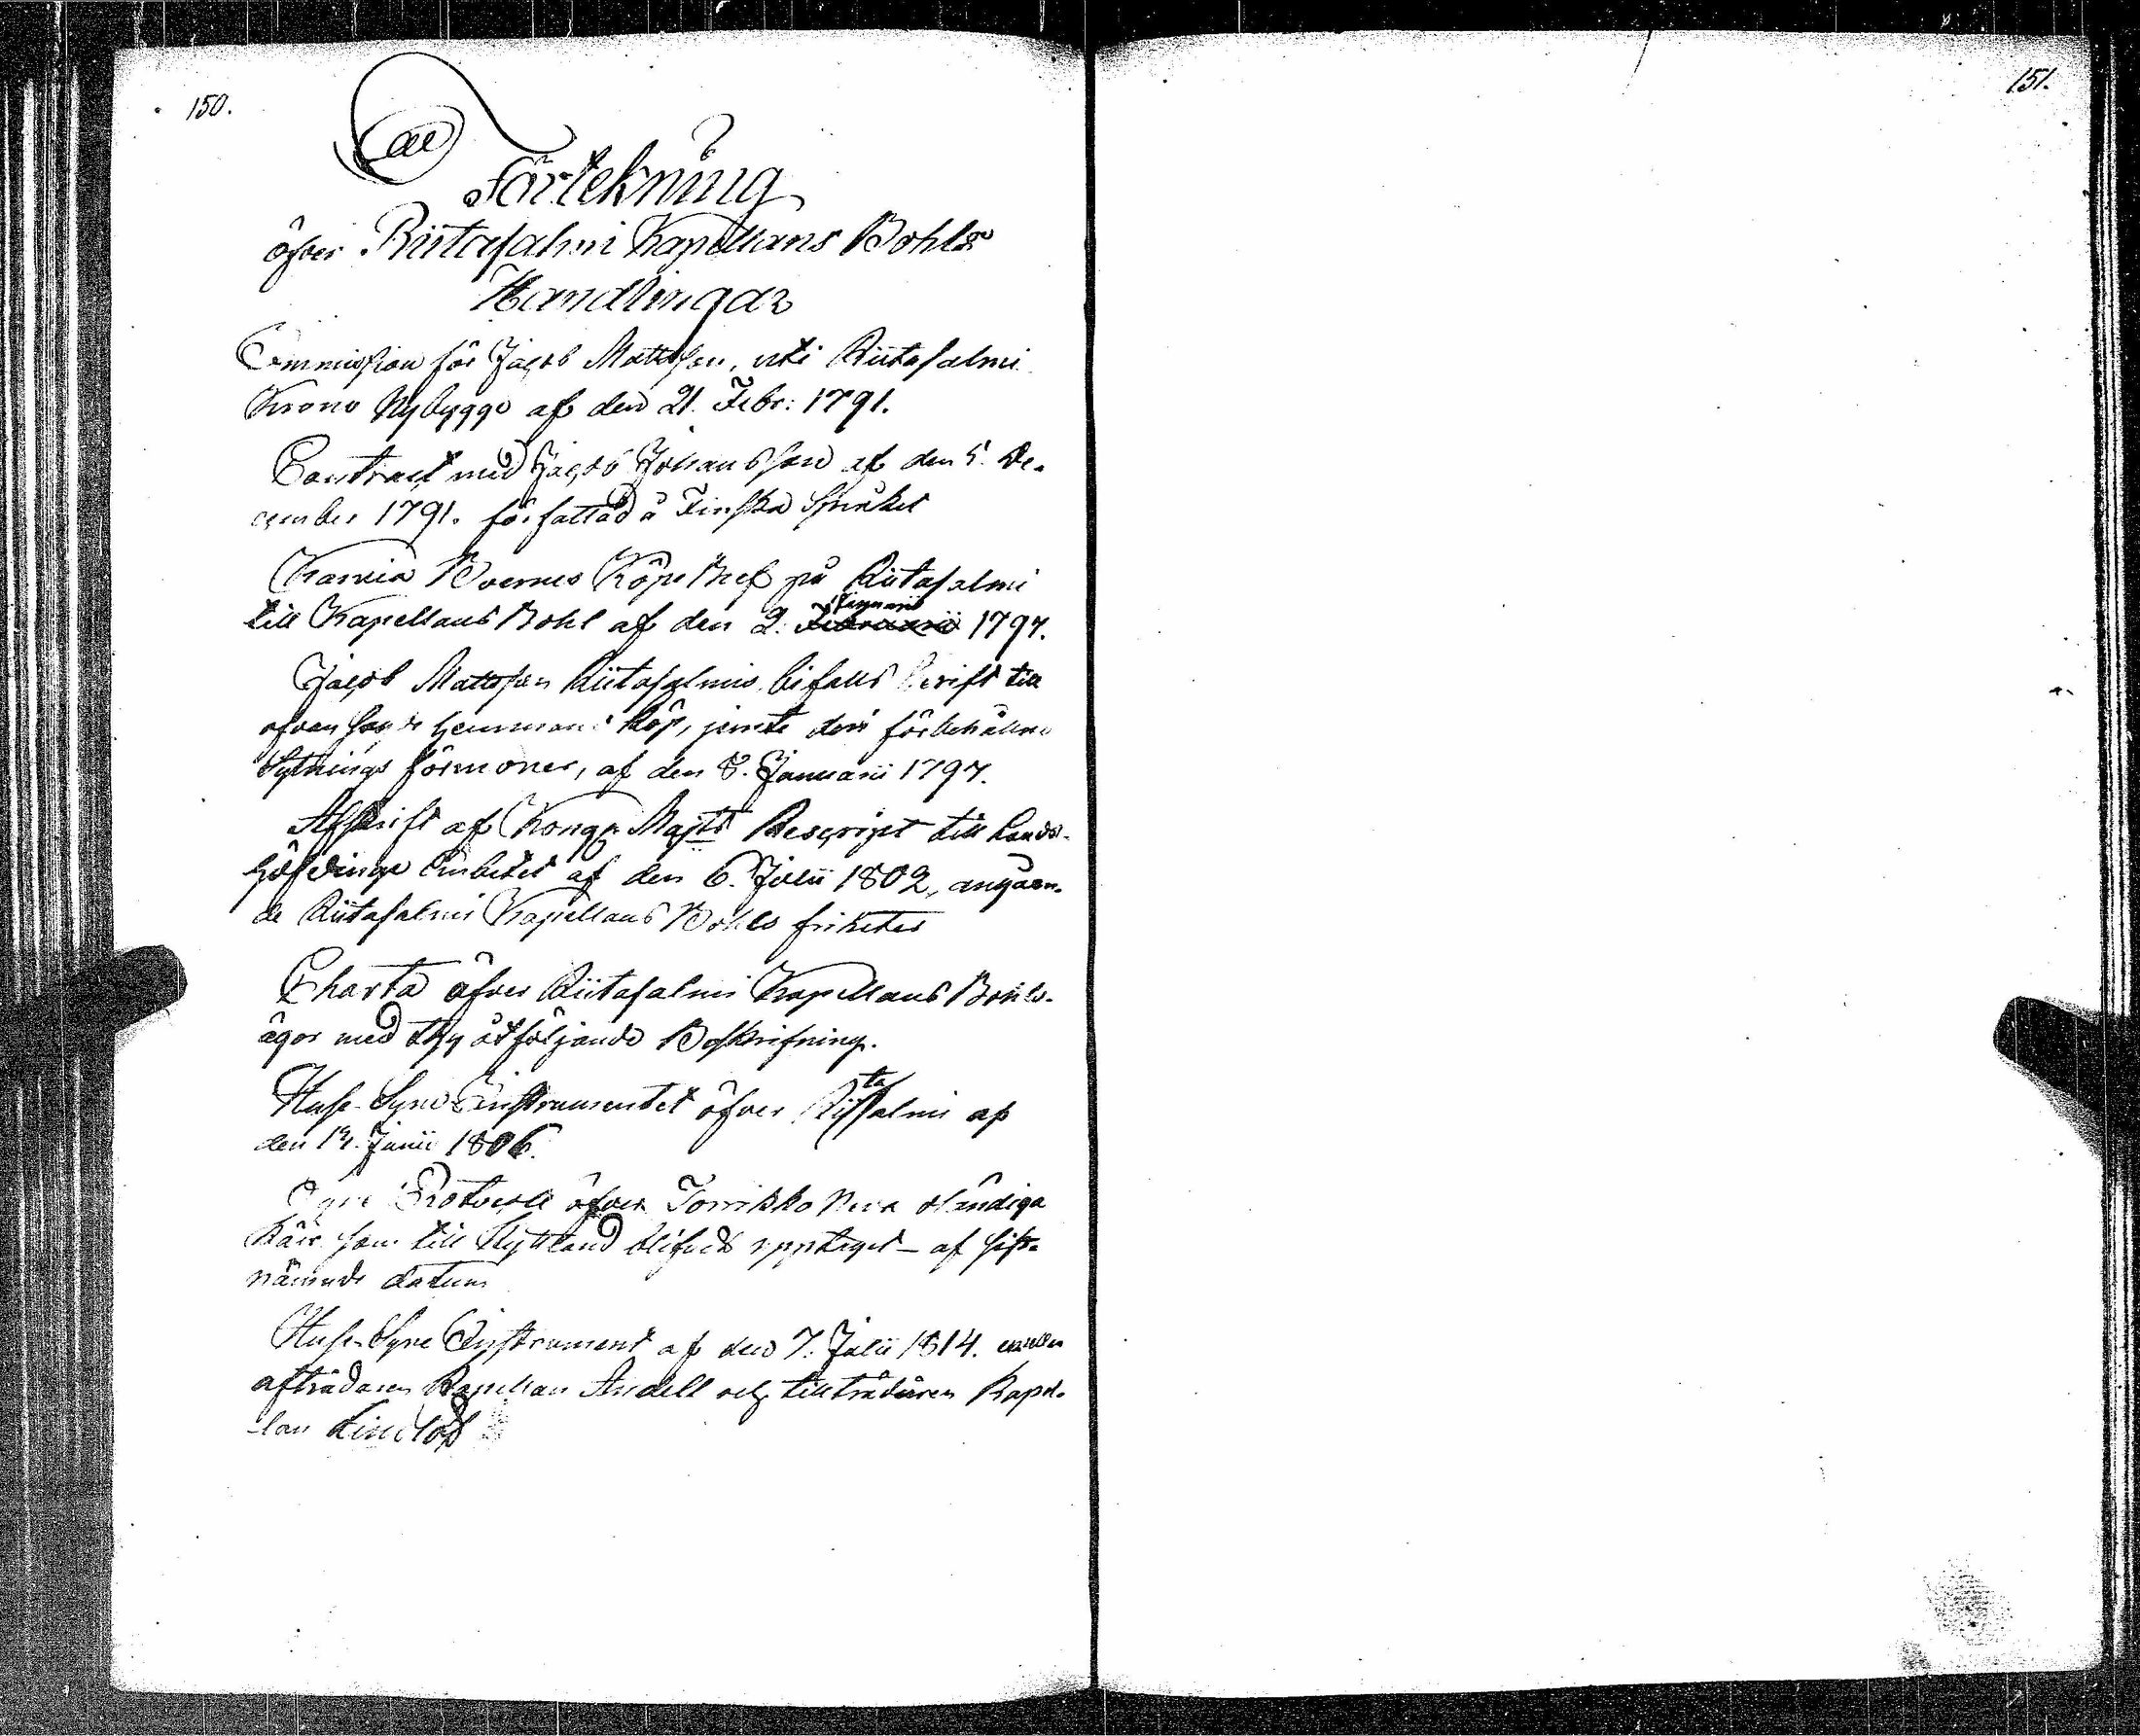 150.
151.
Förtekning
öfver Riitasalmi Kapellans Bohls
Handlingar
Commission för Jacob Mattsson, uti Riitasalmi
Krono Nybygge af den 21. Febr: 1791.
Contract med Jacob Johansson af den 5. De-
cember 1791. författad å Finska Språket
Köpebref på Riitasalmi
till Kapellans Bohl af den 2. Januarii 1797.
Jacob Mattsson Riitasalmis bifalls skrift till
ofvan sagde Hemmans köp, jemte deri förbehållne
Sytnings förmoner, af den 8. Januarii 1797.
Afskrift af Kongl. Majts Rescript till Lands-
höfdinge Embetet af den 6. Julii 1802, angåen-
de Riitasalmi Kapellans Bohls friheter
Charta öfver Riitasalmi Kapellans Bohls-
ägor med thy åtföljande Beskrifning.
Huse-Syns Instrumentet öfver Riitasalmi af
den 14. Junii 1806.
Protocoll öfver Torrikko Neva
Kärr som till Nyttland blifvit upptaget – af sist-
nämnde datum
Huse-Syns Instrument af den 7. Julii 1814. emellan
afträdaren Kapellan och tillträdaren Kapel-
lan Lindlöf